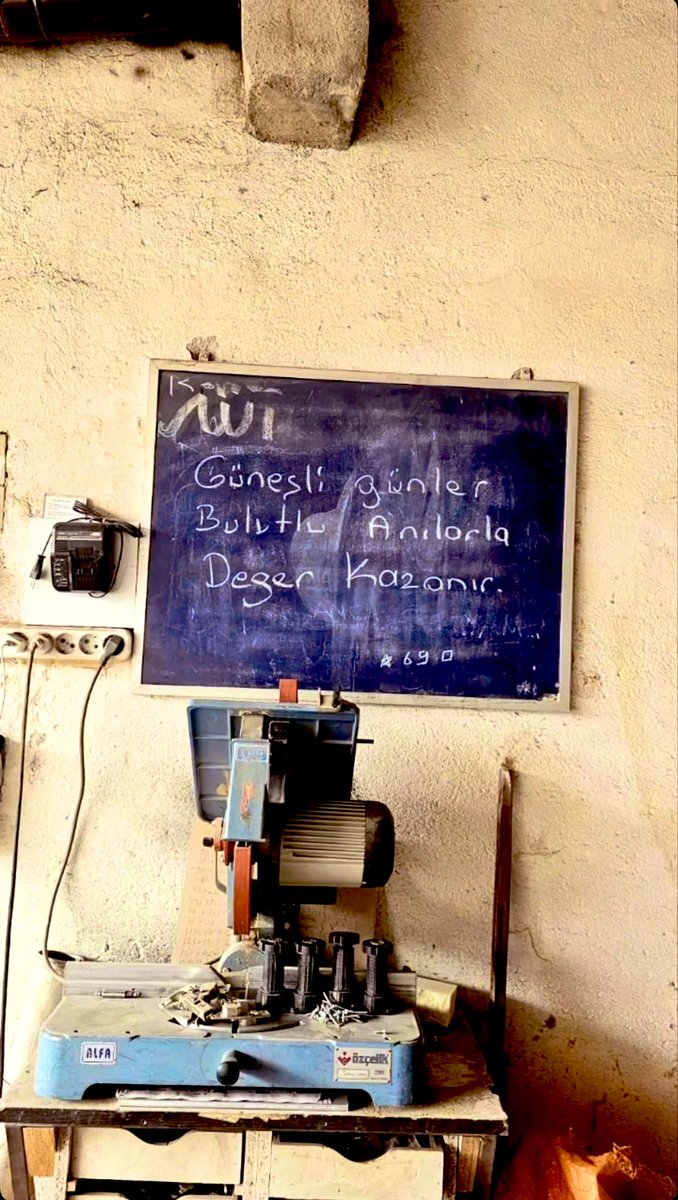 Güneşli günler
Bulutlu Anılarla
Değer Kazanır.
690
ALFA
özçelik